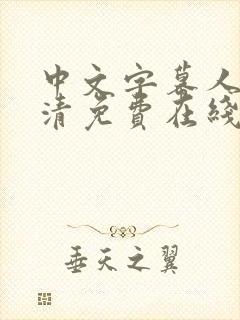 中文字幕人
清免费在线
垂天之翼